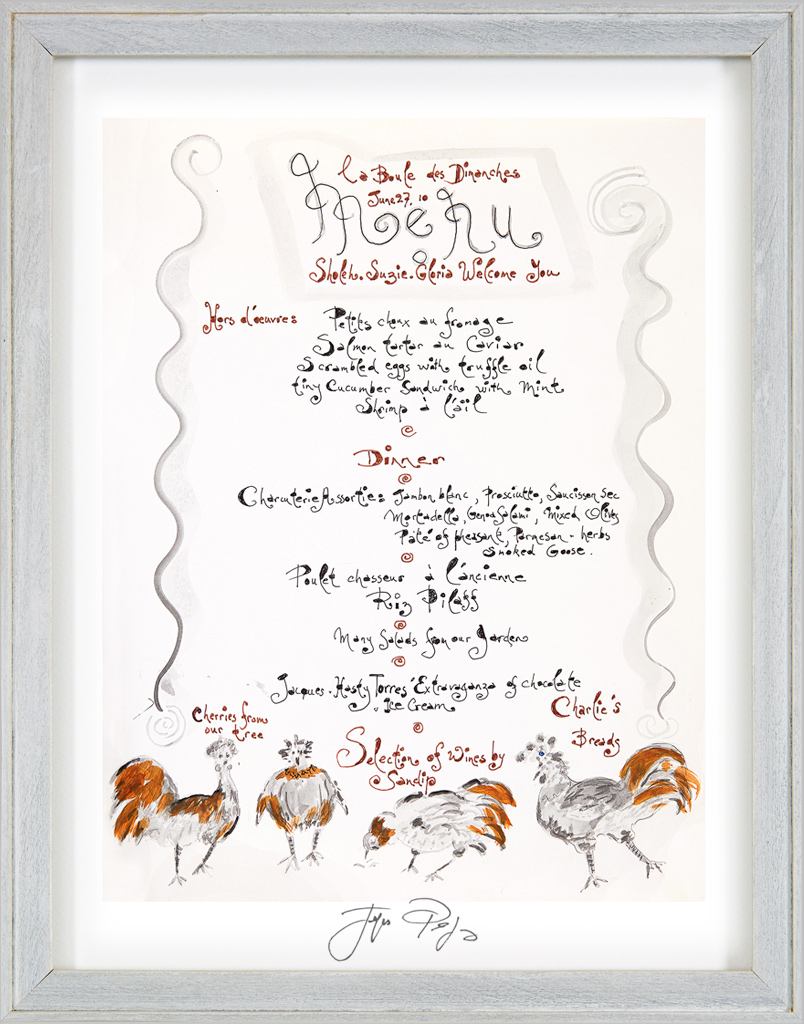 La Boule des Dimanches
June 27, 10
Menu
Sholeh. Suzie. Gloria Welcome You
Hors d'oeuvres
Petits choux au fromage
Salmon tartar au Caviar
Scrambled eggs with truffle oil
tiny Cucumber Sandwich with Mint
Shrimp à l'aïl
Dinner
Charcuterie Assortie: Jambon blanc, Prosciutto, Saucisson Sec
Mortadella, Genoa Salami, Mixed Olives
Pâté of pheasant, Parmesan - herbs
Smoked Goose.
Poulet chasseur à l'ancienne
Riz Pilaff
Many Salads from our Garden
Jacques. Hasty Torres' Extravaganza of chocolate
Ice Cream
Cherries from
our tree
Charlie's
Breads
Selection of Wines by
Sandip